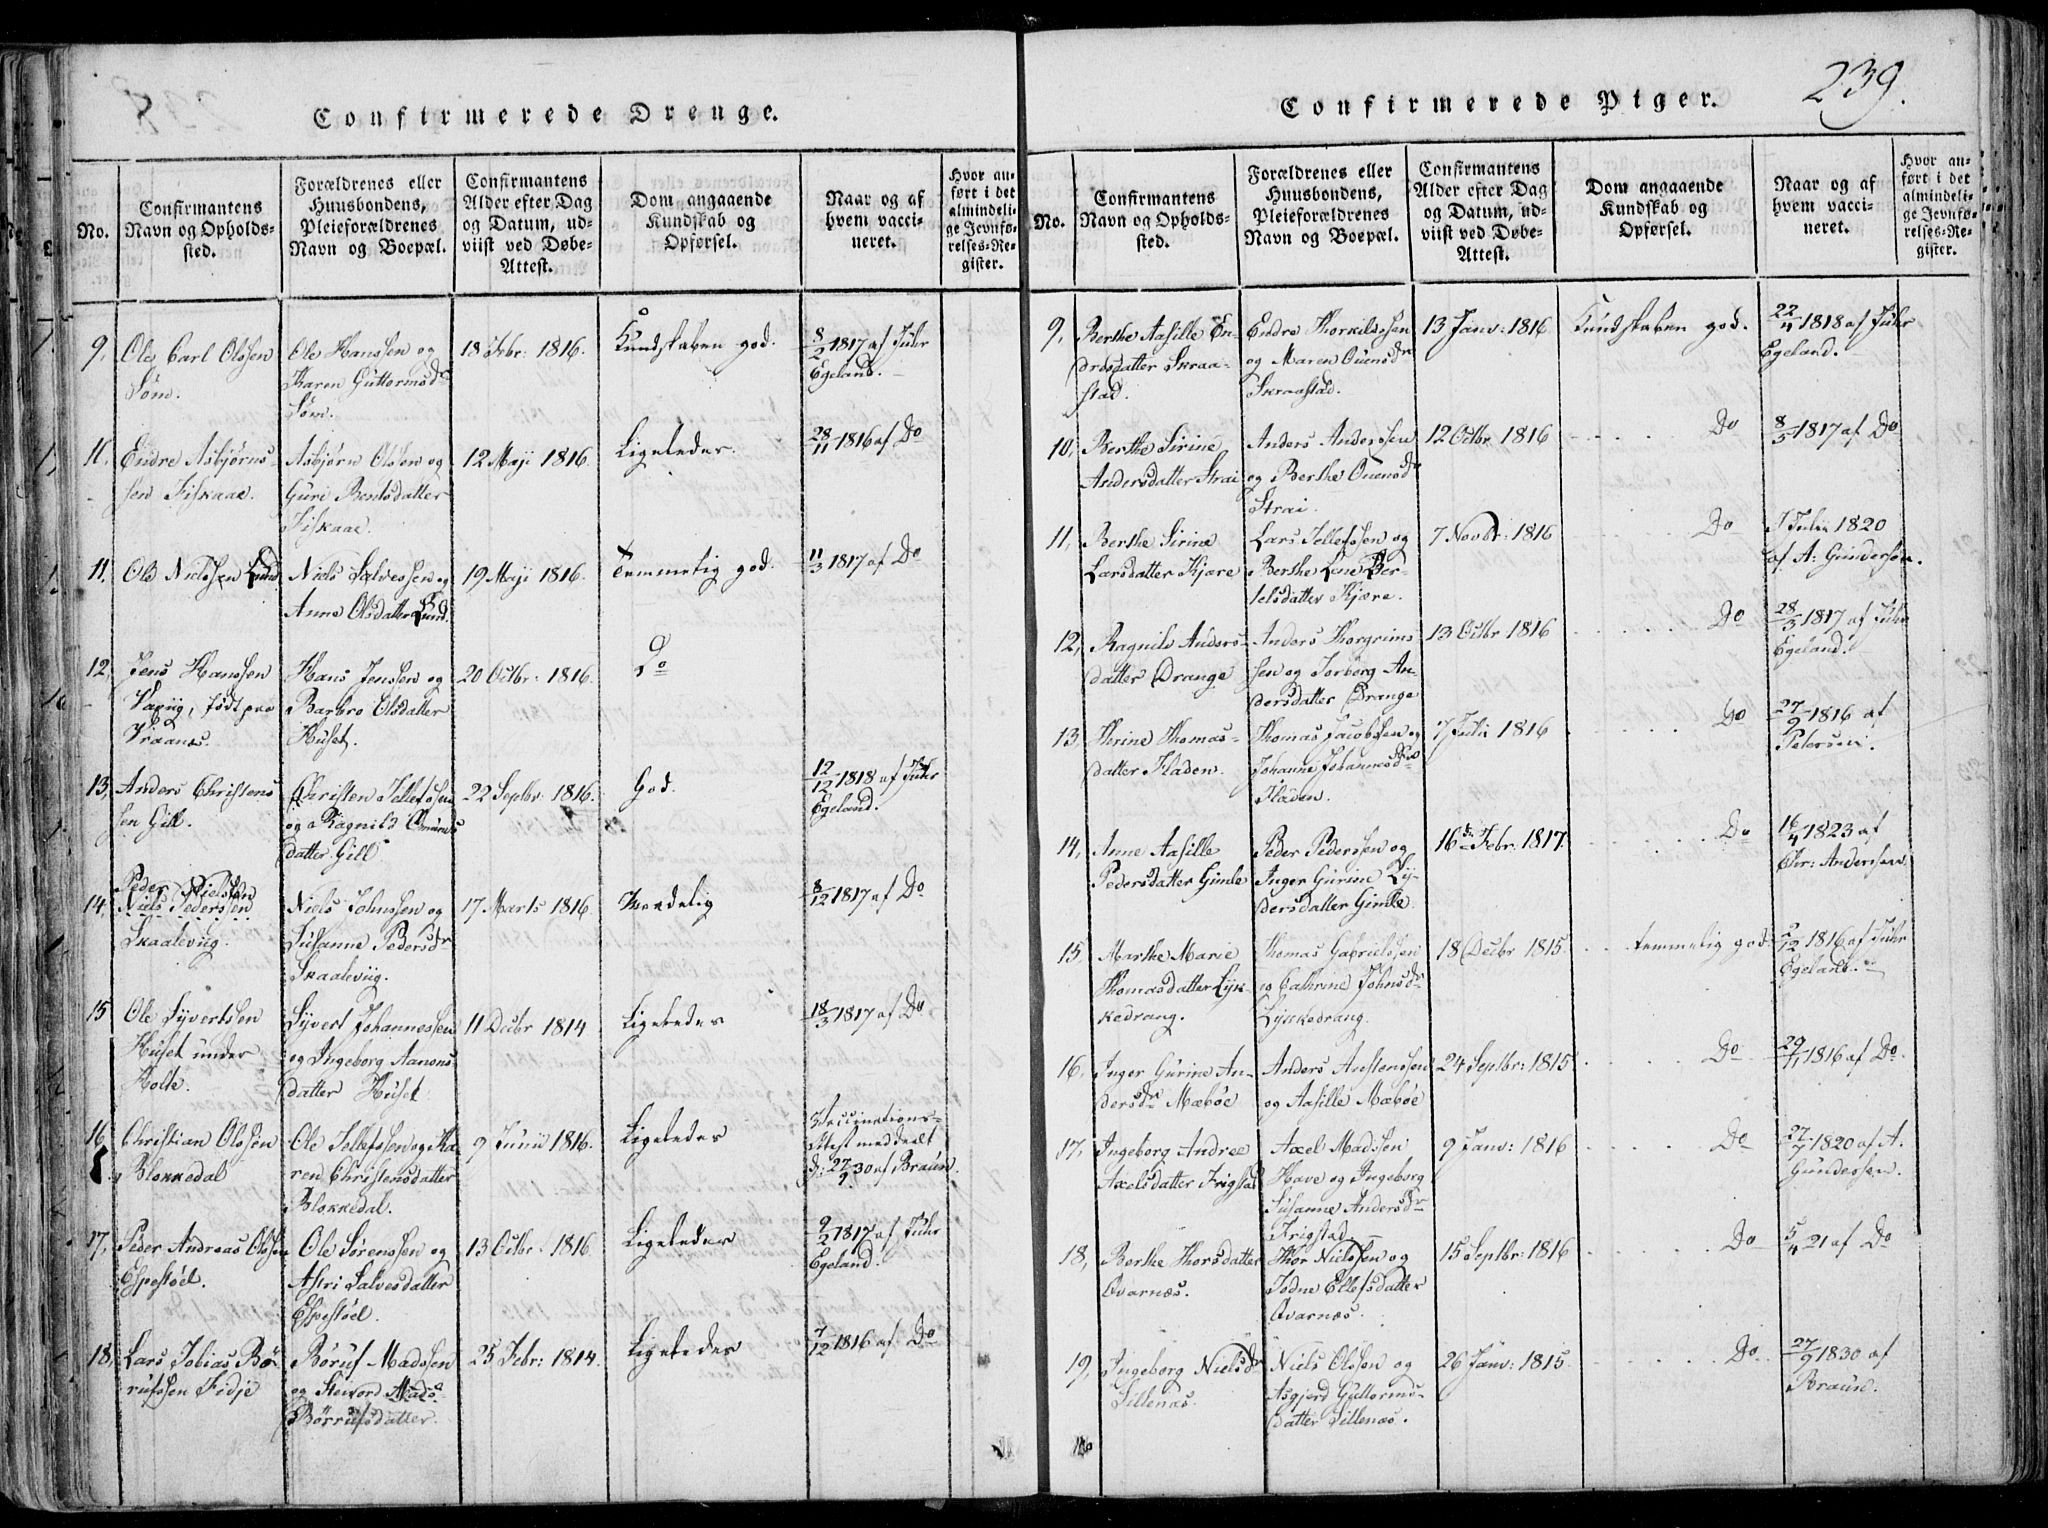 Confirmerede Drenge.
No.
Confirmantens
Navn og Opholds-
sted.
Forældrenes eller
Huusbondens,
Pleieforældrenes
Navn og Boepæl.
Confirmantens
Alder efter Dag
og Datum, ud-
viist ved Døbe-
Attest.
Dom angaaende
Kundskab og
Opførsel.
Naar og af
hvem vacci-
neret.
Hvor an-
ført i det
almindeli-
ge Jevnfø-
relses-Re-
gister.
9,
Ole Carl Olssen
Søm.
Ole Hanssen og
Karen Guttormsdr
Søm.
18 Febr: 1816.
Kundskaben god.
8/2 1817 af Juhr
Egeland.
Endre Asbjørns-
sen Fiskaae.
Asbjørn Olssen og
Guri Bentsdatter
Fiskaae.
12 Maji 1816.
Ligeledes.
28/11 1816 af Do
11,
Ole Nielssen Lund
Niels Salvessen og
Anne Olsdatter Lund.
19 Maji 1816.
Temmelig god.
11/3 1817 af Do
12,
Jens Hanssen
Vraanes.
Hans Jenssen og
Barbro Olsdatter
Huset.
20 Octbr: 1816.
Do
13,
Anders Christens
sen Gill.
Christen Tellefssen
og Ragnild
datter Gill
22 Septbr: 1816.
God.
12/12 1818 af Juhr
Egeland.
14,
Peder Nielssen
Niels Pederssen
Skaaleviig.
Niels Johnssen og
Susanne Pedersdr
Skaaleviig.
17 Marts 1816
Maadelig
8/12 1817 af Do
15
Ole Syvertssen
Huset under
Holte.
Syvert Johannessen
og Ingeborg Aanons
datter Huset
11 Decbr 1814
Ligeledes
18/3 1817 af Do
16
Christian Olssen
Blokkedal
Ole Tellefssen og Ka
ren Christensdatter
Blokkedal.
9 Junii 1816.
Ligeledes
Vaccinations-
Attest meddeelt
d: 27/9 30 af Braun.
17,
Peder Andreas Olssen
Espestøel.
Ole Sørenssen og
Astri Salvesdatter
Espestøel.
13 Octbr 1816
Ligeledes
9/2 1817 af Juhr
Egeland.
18,
Lars Tobias Bø-
rufssen Fidje
Børuf Madssen
og
Børrufsdatter.
25 Febr: 1814.
Ligeledes
7/12 1816 af Do
Confirmerede Piger.
239.
No.
Confirmantens
Navn og Opholds-
sted.
Forældrenes eller
Huusbondens,
Pleieforældrenes
Navn og Boepæl.
Confirmantens
Alder efter Dag
og Datum, ud-
viist ved Døbe-
Attest.
Dom angaaende
Kundskab og
Opførsel.
Naar og af
hvem vacci-
neret.
Hvor an-
ført i det
almindeli-
ge Jevnfø-
relses-Re-
gister.
9,
Berthe Aasille En-
dresdatter Skraa-
stad.
Endre Thorkildssen
og Maren Ouensdr
Skraastad.
13 Janv: 1816
Kundskaben god.
22/4 1818 af Juhr
Egeland.
10,
Berthe Sirine
Andersdatter Strai
Anders Anderssen
og Berthe Ouensdr
Strai.
12 Octbr 1816
Do
8/5 1817 af Do
11,
Berthe Sirine
Larsdatter Kjære
Lars Tellefssen og
Berthe Lene Ber-
telsdatter Kjære.
7 Novbr: 1816
Do
Julii 1820
af A: Gundersen.
12,
Ragnild Anders-
datter Drange
Anders Thorgrims
sen og Torborg An-
dersdatter Drange
13 Octbr 1816
Do
28/3 1817 af Juhr
Egeland.
13
Therine Thomas-
datter Fladen.
Thomas Jacobssen og
Johanne Johannesdr
Fladen.
7 Julii 1816
Do
27/9 1816 af
Petersen.
14,
Anne Aasille
Pedersdatter Gimle
Peder Pederssen og
Inger Gurine
dersdatter Gimle
16 Febr: 1817.
Do
16/4 1823 af
Chr: Anderssen
15,
Marthe Marie
Thomasdatter Lyk-
kedrang.
Thomas Gabrielssen
og Cathrine Johnsdr
Lykkedrang.
18 Decbr 1815.
temmelig god
2/12 1816 af Juhr
Egeland.
16.
Inger Gurine An-
dersdr Mæbøe
Anders Anstenssen
og Aasille Mæbøe
24 Septbr: 1815
Do
29/11 1816 af Do.
17,
Ingeborg Andree
Axelsdatter Frigstad
Axel Madssen
Have og Ingeborg
Susanne Andersdr
Frigstad
9 Janv: 1816
Do
27/7 1820 af A.
Gunderssen.
18,
Berthe Thorsdatter
Qvarnæs.
Thor Nielssen og
Todne Ellefsdatter
Qvarnæs.
15 Septbr: 1816
Do
5/4 21 af Do
19,
Ingeborg Nielsdr
Sillenæs.
Niels Olssen og
Asgjerd Guttorms-
datter Sillenæs.
26 Janv: 1815.
Do.
27/9 1830 af
Braun.